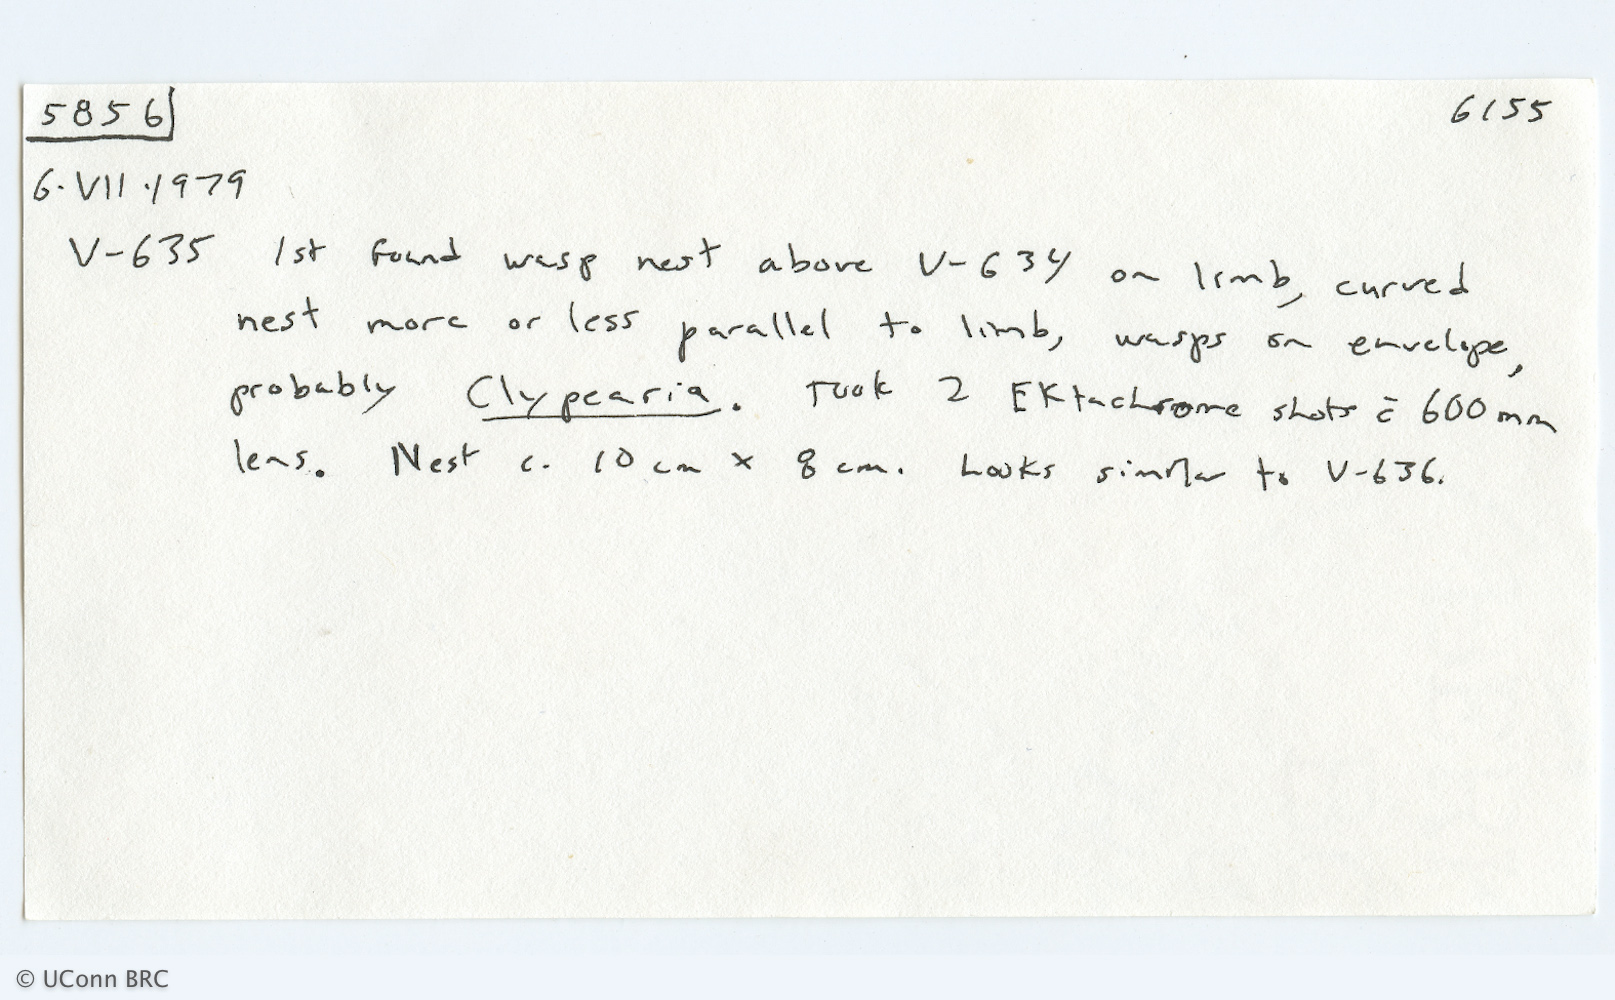 5856
6155
6.VII.1979
V-635 1st found wasp nest above V-634 on limb, curved
nest more or less parallel to limb, wasps on envelope,
probably Clypearia. Took 2 EKtachrome shots c̄ 600mm
lens. Nest c. 10 cm x 8 cm. Looks similar to V-636.
© UConn BRC